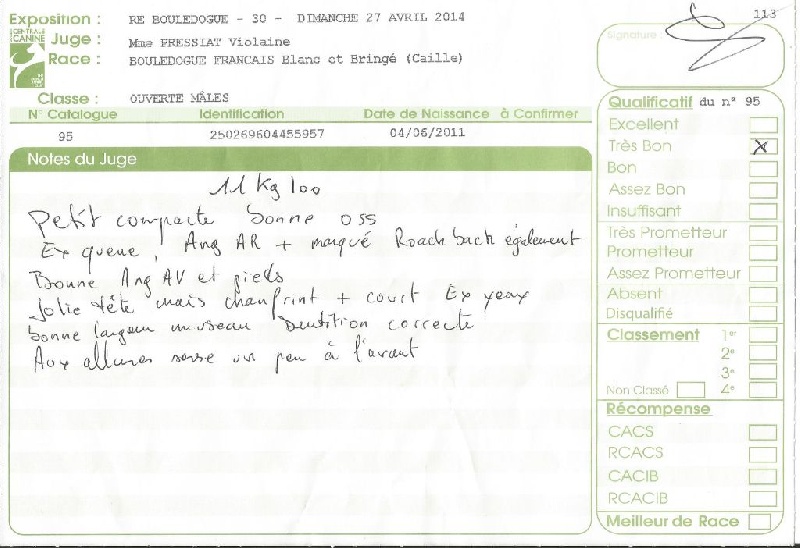 Exposition : RE BOULEDOGUE - 30 - DIMANCHE 27 AVRIL 2014
CENTRALE CANINE
Juge : Mme FRESSIAT Violaine
Race : BOULEDOGUE FRANCAIS Blanc et Bringé (Caille)
Classe : OUVERTE MÂLES
N° Catalogue Identification Date de Naissance à Confirmer
95 250269604455957 04/06/2011
Notes du Juge
11 Kg 100
Petit compacte bonne oss
Ex queue, Ang AR + marqué Roach back également
Bonne Ang AV et pieds
Jolie tête mais chanfrint + court Ex yeux
bonne largeur museau Dentition correcte
Aux allures un peu à l'avant
113
Signature :
Qualificatif du n° 95
Excellent
Très Bon X
Bon
Assez Bon
Insuffisant
Très Prometteur
Prometteur
Assez Prometteur
Absent
Disqualifié
Classement 1er
2e
3e
Non Classé 4e
Récompense
CACS
RCACS
CACIB
RCACIB
Meilleur de Race